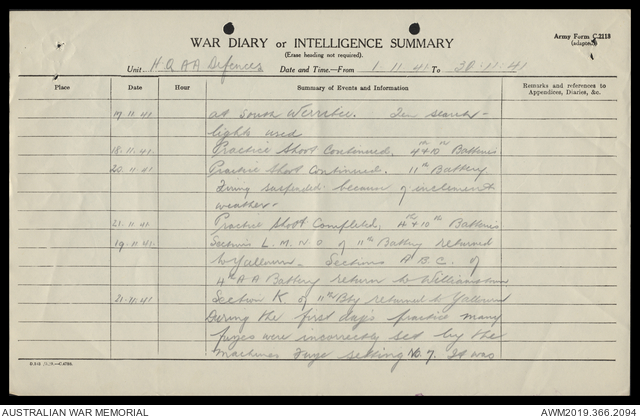 Army Form C.2118
(adapted.)
WAR DIARY or INTELLIGENCE SUMMARY
(Erase heading not required).
Unit H.Q. A A Defences Date and Time.—From 1.11.41 To 30.11.41
Place Date Hour Summary of Events and Information Remarks and references to Appendices, Diaries, &c.
17.11.41 at South Werribee. Ten search-
lights used
18.11.41 Practice Shoot Continued, 4th & 10th Batteries
20.11.41 Practice Shoot Continued. 11th Battery
Firing suspended because of inclement
weather.
21.11.41 Practice Shoot Completed, 4th & 10th Batteries
19.11.41. Sections L. M. N. O. of 11th Battery returned
to Yallourn. Sections A. B. C. of
4th A A Battery return to Williamstown
21.11.41 Section K. of 11th Bty returned to Yallourn
During the first day's practice many
fuzes were incorrectly set by the
Machines Fuze setting No. 7. It was
AUSTRALIAN WAR MEMORIAL
AWM2019.366.2094